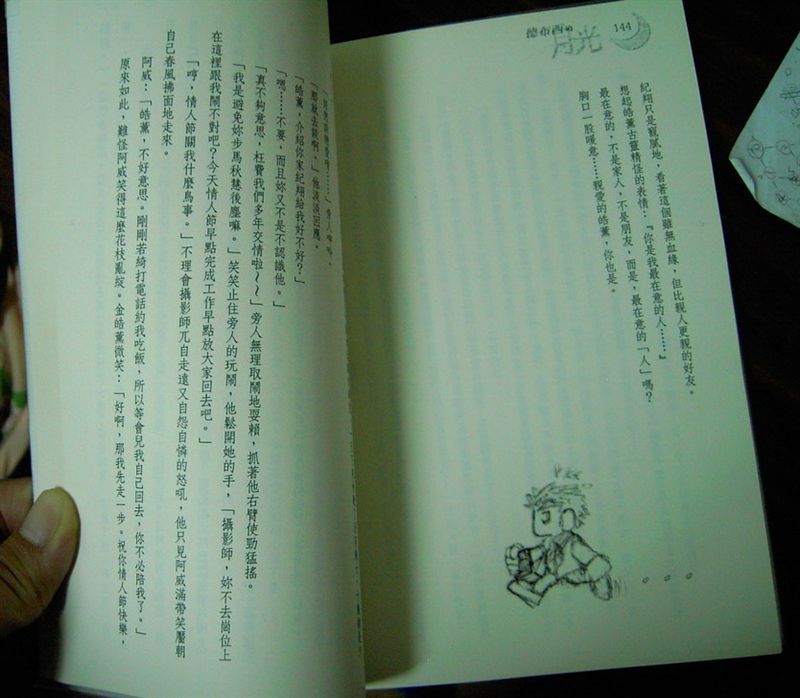 144
德布西的
月光
紀翔只是寵膩地，看著這個雖無血緣，但比親人更親的好友。
想起皓薰古靈精怪的表情：『你是我最在意的人……』
最在意的，不是家人，不是朋友，而是，最在意的「人」嗎？
胸口一股暖意……親愛的皓薰，你也是。
「那就去談啊。」他淡淡回應。
「皓薰，介紹你家紀翔給我好不好？」
「嗯……不要，而且妳又不是不認識他。」
「真不夠意思，枉費我們多年交情啦～～」旁人無理取鬧地耍賴，抓著他右臂使勁猛搖。
「我是避免妳步馬秋慧後塵嘛。」笑笑止住旁人的玩鬧，他鬆開她的手，「攝影師，妳不去崗位上
在這裡跟我鬧不對吧？今天情人節早點完成工作早點放大家回去吧。」
「哼，情人節關我什麼鳥事。」不理會攝影師兀自走遠又自怨自憐的怒吼，他只見阿威滿帶笑靨朝
自己春風拂面地走來。
阿威：「皓薰，不好意思。剛剛若綺打電話約我吃飯，所以等會兒我自己回去，你不必陪我了。」
原來如此，難怪阿威笑得這麼花枝亂綻。金皓薰微笑：「好啊，那我先走一步。祝你情人節快樂，